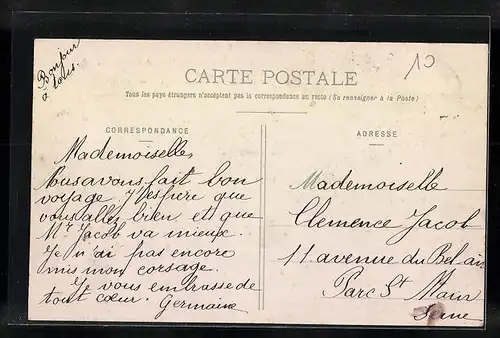 Bonjour
à tous.
10
CARTE POSTALE
Tous les pays étrangers n'acceptent pas la correspondance au recto (Se renseigner à la Poste)
CORRESPONDANCE
Mademoiselle,
Nous avons fait bon
voyage. J'espère que
vous allez bien et que
Mr Jacob va mieux.
Je n'ai pas encore
mis mon corsage.
Je vous embrasse de
tout cœur. Germaine
ADRESSE
Mademoiselle
Clemence Jacob
11 avenue du Bel air
Parc St Maur
Seine